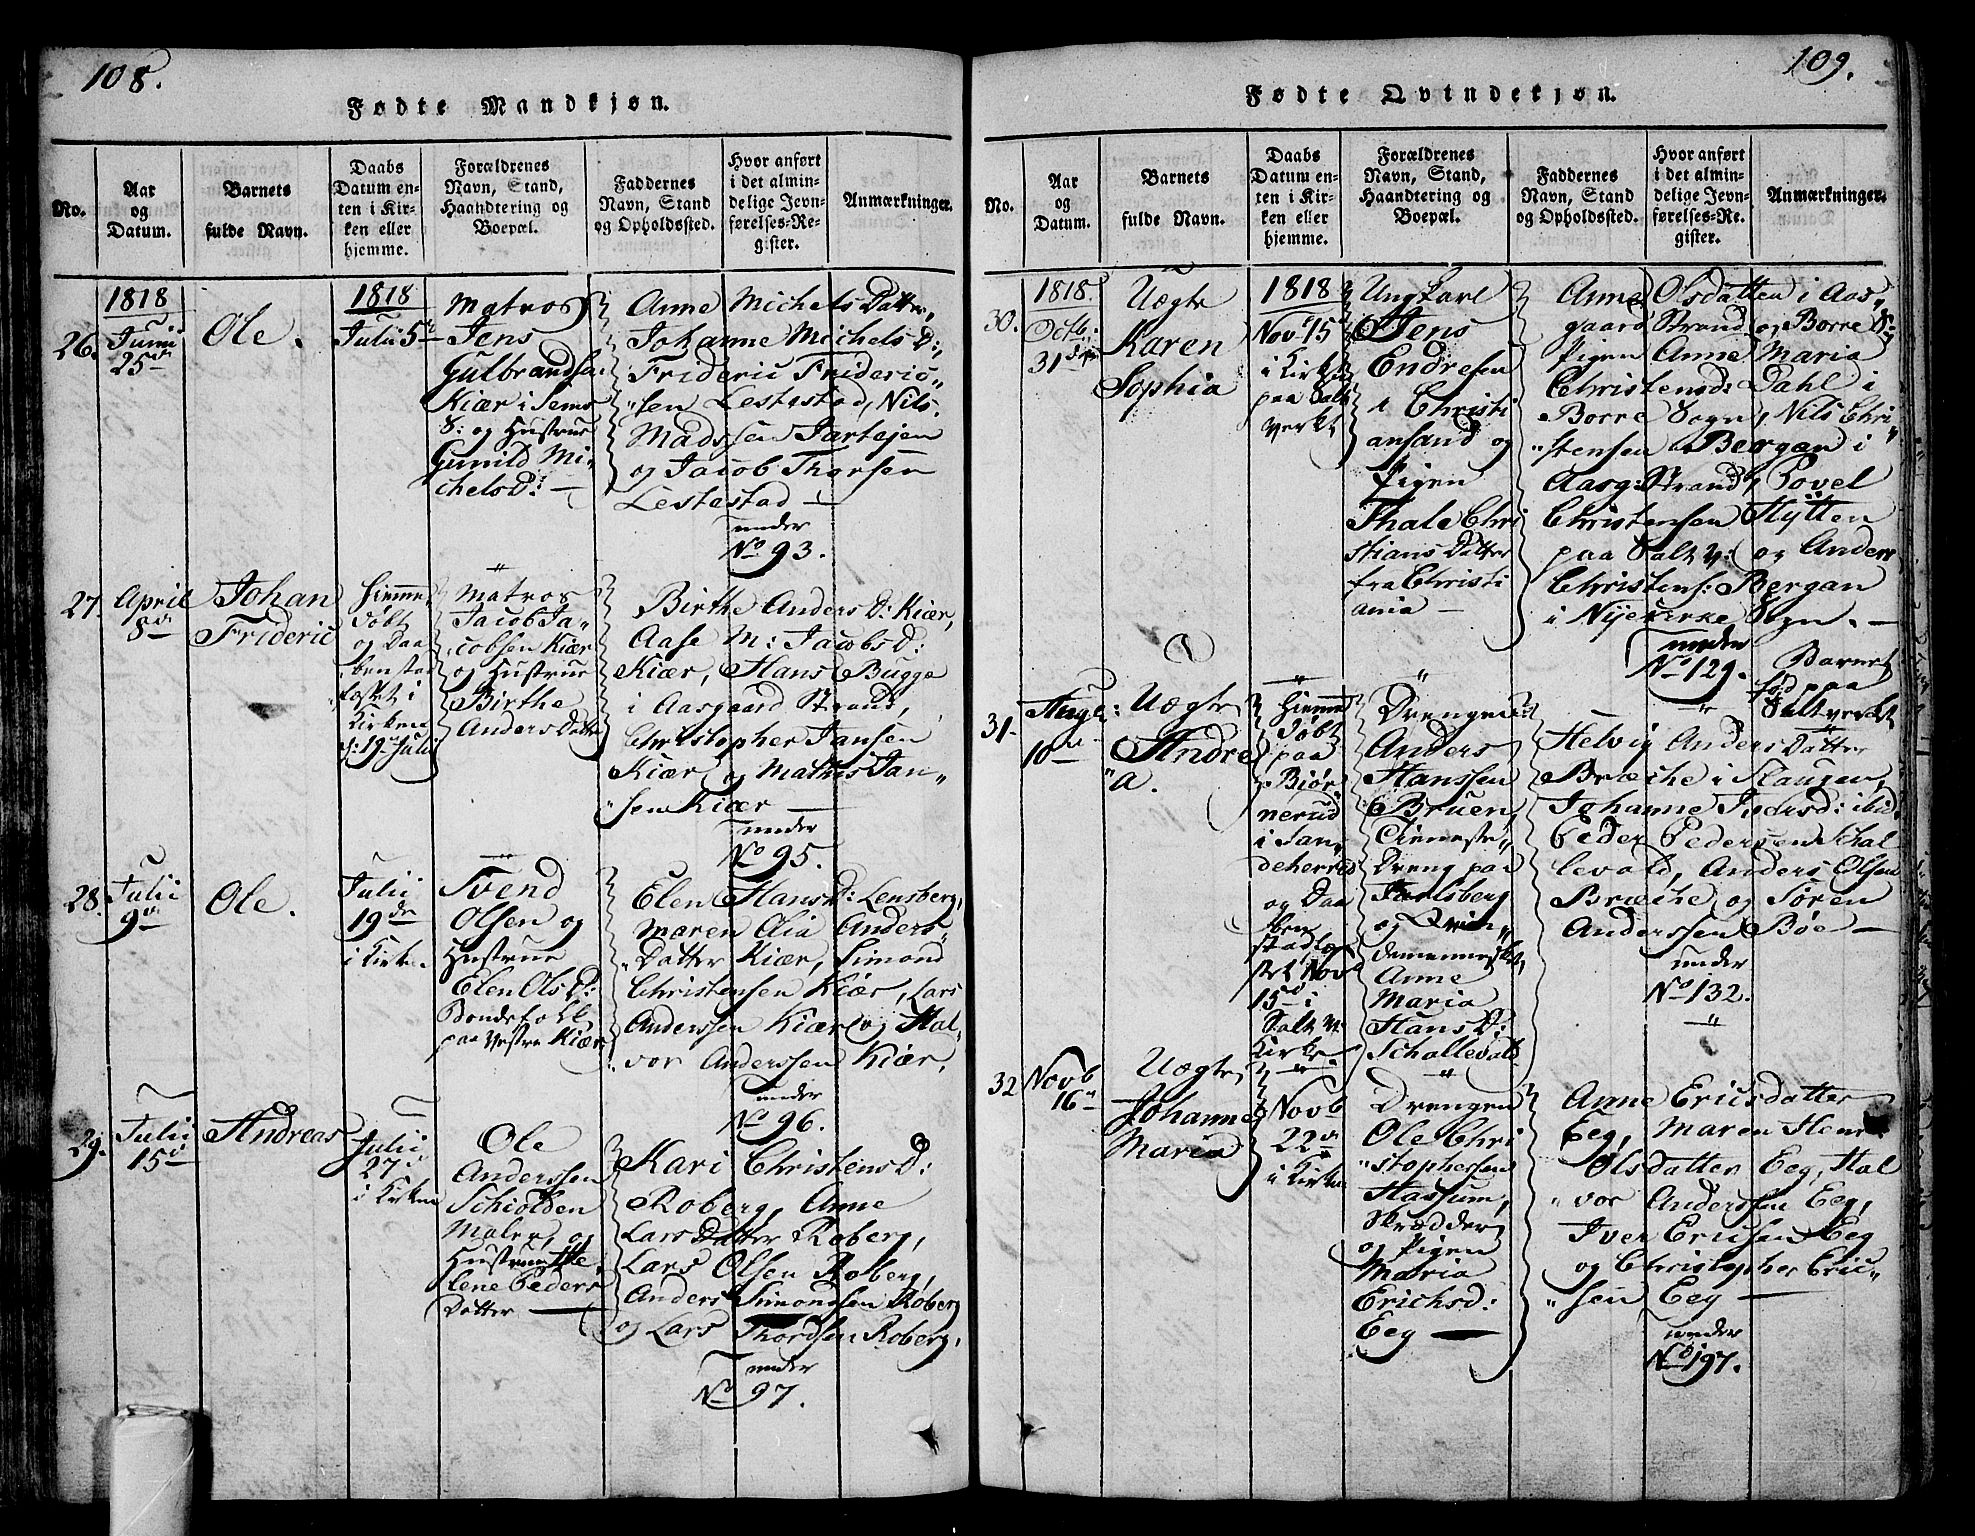 108.
Fødte Mandkjøn.
No.
Aar og Datum.
Barnets fulde Navn.
Daabs Datum enten i Kirken eller hjemme.
Forældrenes Navn, Stand, Haandtering og Boepæl.
Faddernes Navn, Stand og Opholdssted.
Hvor anført i det almindelige Jevnførelses-Register.
Anmærkninger.
26.
1818
Junii
25de
Ole.
1818
Julii 5te
Matros
Jens
Gulbrandsen
Kiær i Sems
S: og Hustrue
Gunild Mi-
chelsD: —
Anne Michels Datter,
Johanne Michels D:,
Frideric Frideric„
„sen Lestestad, Nils
Madssen Jartejen
og Jacob Thorsen
Lestestad —
under
No 93.
27.
April
8de
Johan
Frideric
Hiemme
døbt
og Daa
ben stad
fæstet i
Kirken
d: 19de Julii
Matros
Jacob Ja-
cobsen Kiær
og Hustrue
Birthe
Anders Datter
Birthe Anders D: Kiær,
Aase M: Jacobs D:
Kiær, Hans Bugge
i Aasgaard Strand,
Christopher Jansen
Kiær og Mathis Jan„
„sen Kiær —
under
No 95.
28.
Julii
9de
Ole.
Julii
19de
i Kirken
Svend
Olsen og
Hustrue
Elen Ols D:
Bondefolk
paa Vestre Kiær
Elen Hans D: Lensberg,
Maren Lia Anders„
„Datter Kiær, Simond
Christensen Kiær, Lars
Anderssen Kiær og Hal„
„vor Anderssen Kiær,
under
No 96.
29.
Julii
15de
Andreas
Julii
27.
i Kirken
Ole
Anderssen
Schiolden
Maler, og
Hustrue He„
lene Peders
Datter —
Kari Christens D:
Roberg, Anne
Lars Datter Roberg,
Lars Olsen Roberg,
Anders Simondsen Roberg
og Lars Thordsen Roberg.
under
No 97.
109.
Fødte Qvindekjøn.
No.
Aar og Datum.
Barnets fulde Navn.
Daabs Datum enten i Kirken eller hjemme.
Forældrenes Navn, Stand, Haandtering og Boepæl.
Faddernes Navn, Stand og Opholdssted.
Hvor anført i det almindelige Jevnførelses-Register.
Anmærkninger.
30.
1818.
Octb:
31
Uægte
Karen
Sophia
1818
Nov 15
i Kirken
paa Salt
verkt
Ungkarl
Jens
Endresen
i Christi
ansand og
Pigen
Thale Chri
stians Datter
fra Christi
ania —
Anne Olsdatter i Aas„
gaard Strand og Borre S:
Pigen Anne Maria
Christensd: Dahl i
Borre Sogn, Nils Chri„
„stensen Bergan i
Aasg: Strand, Povel
Christensen Hytten
paa Salt v: og Anders
Christens: Bergan
i Nijekirke Sogn. —
under
No 129.
Barnet
fød paa
Saltverket
31.
Aug:
10de
Uægte
Andre
„a.
Hiemme
døbt
paa
Bjør„
nerud
i San„
deherred
og Daa
ben
stadfæ
stet Nov
15de i
Salt v.
Kirke
Drengen
Anders
Hanssen
Bruen,
Tieneste„
Dreng paa
Jarlsberg
og Qvin„
demennesket,
Anne
Maria
Hans D:
Schallevald
Helvig Anders Datter
Bræche i Slaugen,
Johanne Iversd: ibid
Peder Pedersen Schal
levald, Anders Olsen
Bræche og Søren
Anderssen Bøe —
under
No 132.
32
Novb
16de
Uægte
Johanne
Maria
Novb
22de
i Kirken
Drengen
Ole Chri
„stophessen
Hassum,
Skrædder
og Pigen
Maria
Erichsd:
Eeg —
Anne Ericsdatter
Eeg, Maren Hen
Olsdatter Eeg, Hal
„vor Anderssen Eeg,
Iver Ericsen Eeg
og Christopher Eric„
„sen Eeg —
under
No 197.